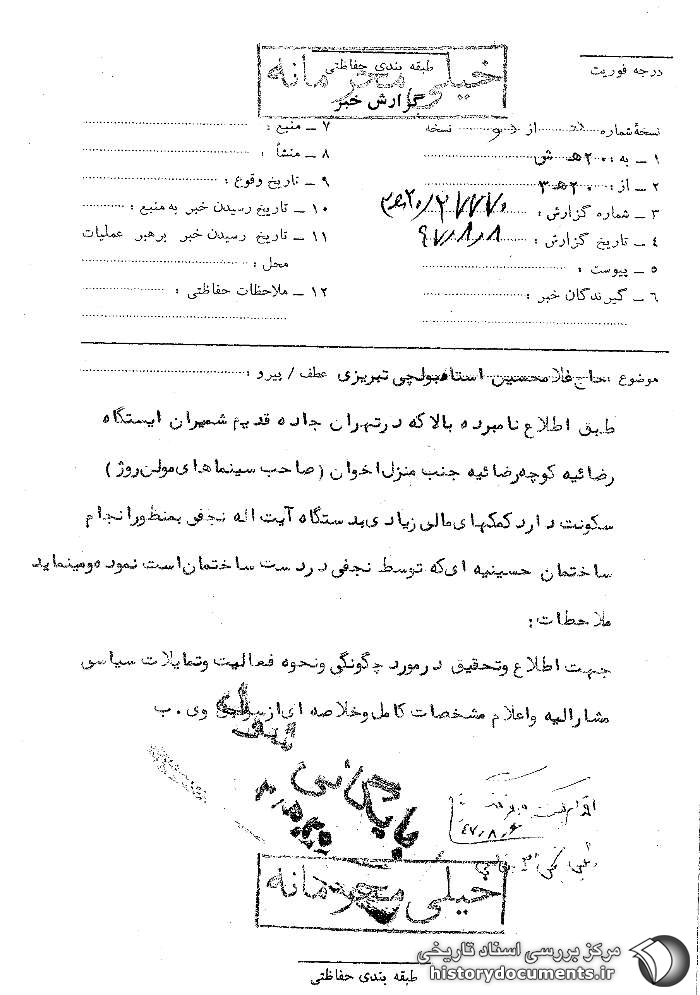 درجه فوریت
طبقه بندی حفاظتی
خیلی محرمانه
گزارش خبر
نسخهٔ شماره از نسخه
۱ ـ به : ۲۰ هـ ش
۲ ـ از : ۲۰ هـ ۳
۳ ـ شماره گزارش :
۴ ـ تاریخ گزارش : ۴۷/۸/۸
۵ ـ پیوست :
۶ ـ گیرندگان خبر :
۷ ـ منبع :
۸ ـ منشأ :
۹ ـ تاریخ وقوع :
۱۰ ـ تاریخ رسیدن خبر به منبع :
۱۱ ـ تاریخ رسیدن خبر برهبر عملیات
محل :
۱۲ ـ ملاحظات حفاظتی :
موضوع : حاج غلامحسین استامبولچی تبریزی عطف / پیرو :
طبق اطلاع نامبرده بالا که در تهران جاده قدیم شمیران ایستگاه
رضائیه کوچه رضائیه جنب منزل اخوان ( صاحب سینماهای مولن روژ )
سکونت دارد کمکهای مالی زیادی بدستگاه آیت اله نجفی بمنظور انجام
ساختمان حسینیه ای که توسط نجفی در دست ساختمان است نموده و مینماید
ملاحظات :
جهت اطلاع و تحقیق در مورد چگونگی و نحوه فعالیت و تمایلات سیاسی
مشارالیه و اعلام مشخصات کامل و خلاصه ای از سوابق وی . ب
بایگانی
۴۷/۸/
خیلی محرمانه
طبقه بندی حفاظتی
مرکز بررسی اسناد تاریخی
historydocuments.ir